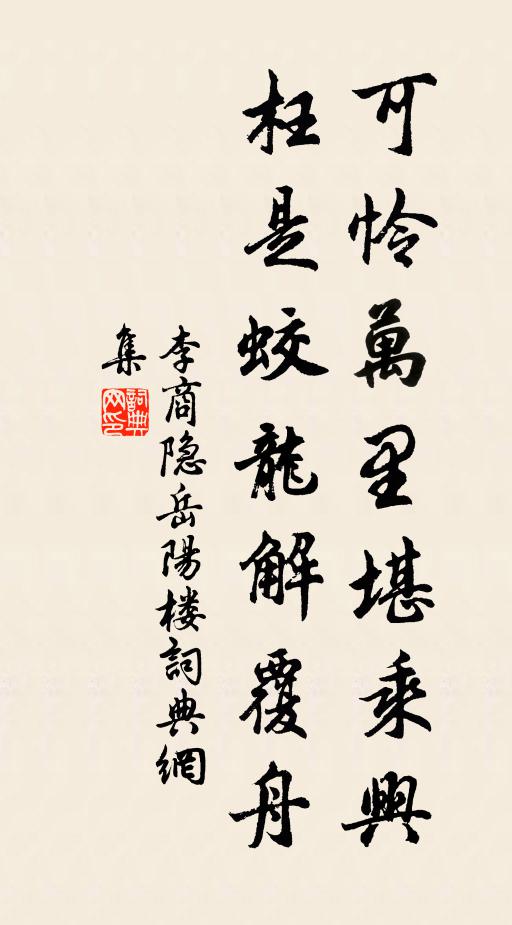 可怜萬里堪乘興
枉是蛟龍解覆舟
李商隐岳陽楼詞典網
集
詞典
网印